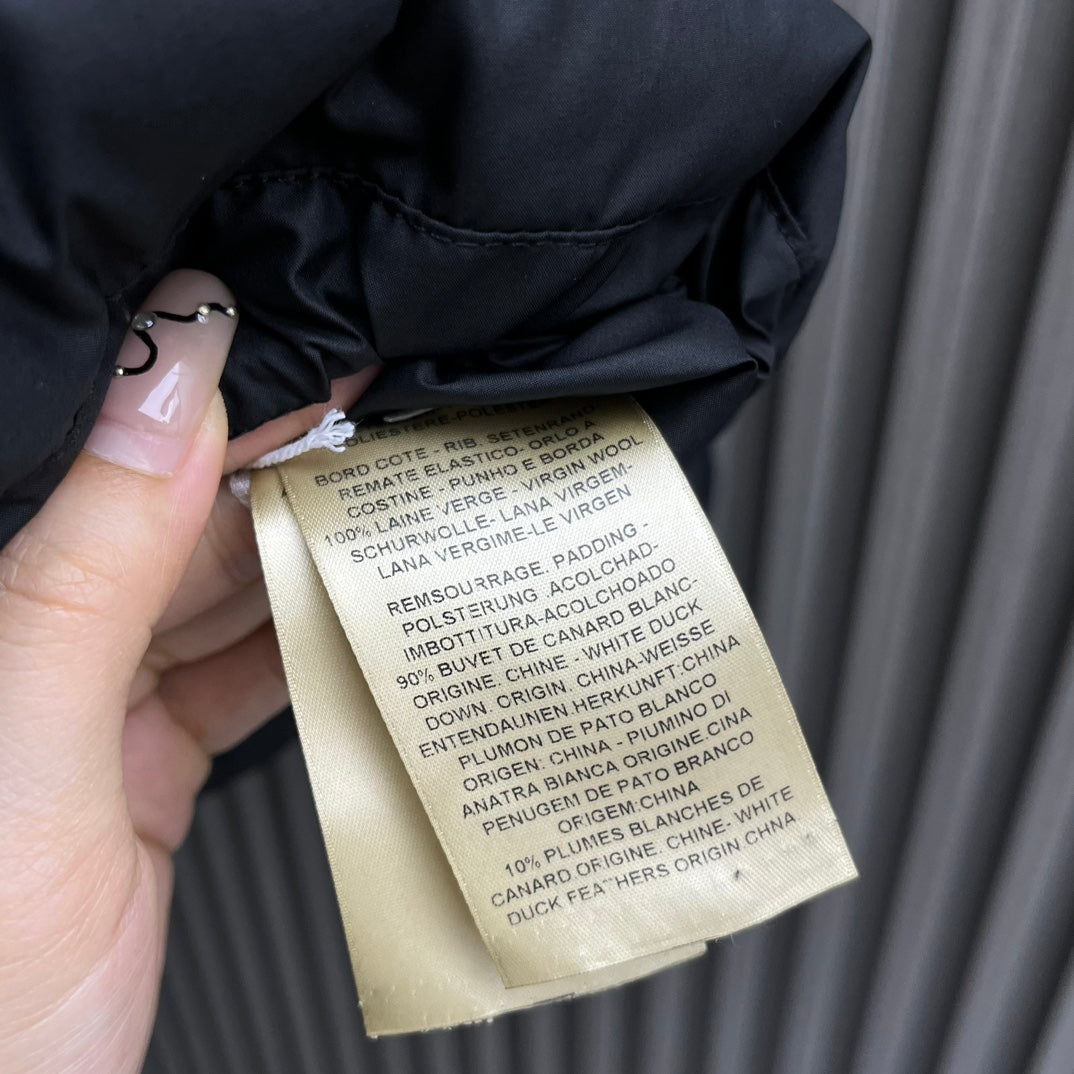 BORD COTE - RIB. SETENRAND
REMATE ELASTICO. ORLO A
COSTINE - PUNHO E BORDA
100% LAINE VERGE - VIRGIN WOOL
SCHURWOLLE- LANA VIRGEM-
LANA VERGIME-LE VIRGEN
REMSOURRAGE. PADDING -
POLSTERUNG .ACOLCHAD-
IMBOTTITURA-ACOLCHOADO
90% BUVET DE CANARD BLANC-
ORIGINE. CHINE - WHITE DUCK
DOWN. ORIGIN. CHINA-WEISSE
ENTENDAUNEN.HERKUNFT:CHINA
PLUMON DE PATO BLANCO
ORIGEN: CHINA - PIUMINO DI
ANATRA BIANCA ORIGINE.CINA
PENUGEM DE PATO BRANCO
ORIGEM:CHINA
10% PLUMES BLANCHES DE
CANARD ORIGINE. CHINE- WHITE
DUCK FEATHERS ORIGIN CHNA